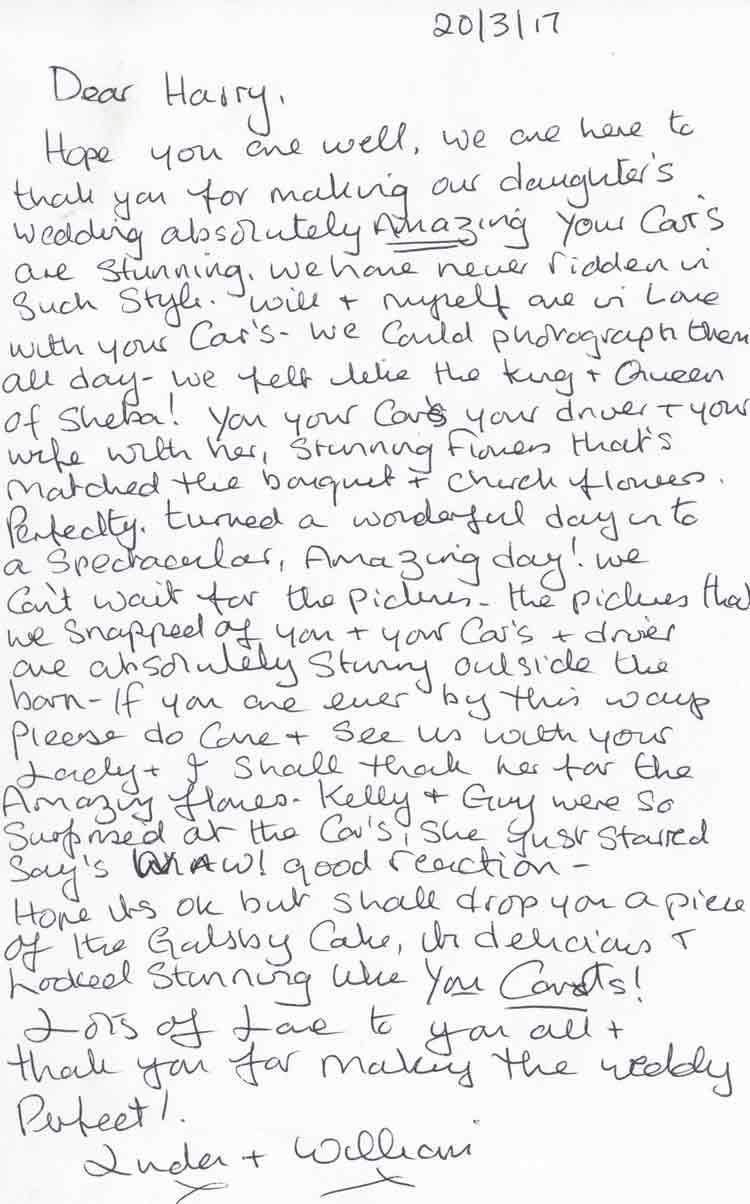 20/3/17
Dear Harry,
Hope you are well, we are here to
thank you for making our daughter's
wedding absolutely Amazing Your Car's
are Stunning. we have never ridden in
Such Style. Will + myself are in Love
with your Car's - we Could photograph them
all day - we felt like the king + Queen
of Sheba! You your Car's your driver + your
wife with her, Stunning Flowers that's
matched the bouquet + church flowers.
Perfectly. turned a wonderful day into
a Spectacular, Amazing day! we
Can't wait for the pictures - the pictures that
we Snapped of you + your Car's + driver
are absolutely Stunning outside the
barn - If you are ever by this way
please do Come + See us with your
Lady + I Shall thank her for the
Amazing flowers - Kelly + Guy were So
Surprised at the Car's, She just Starred
Say's WAW! good reaction -
Hope its ok but shall drop you a piece
of the Gatsby Cake, its delicious +
Looked Stunning like You Cars!
Lots of Love to you all +
thank you for making the wedding
Perfect!
+ William